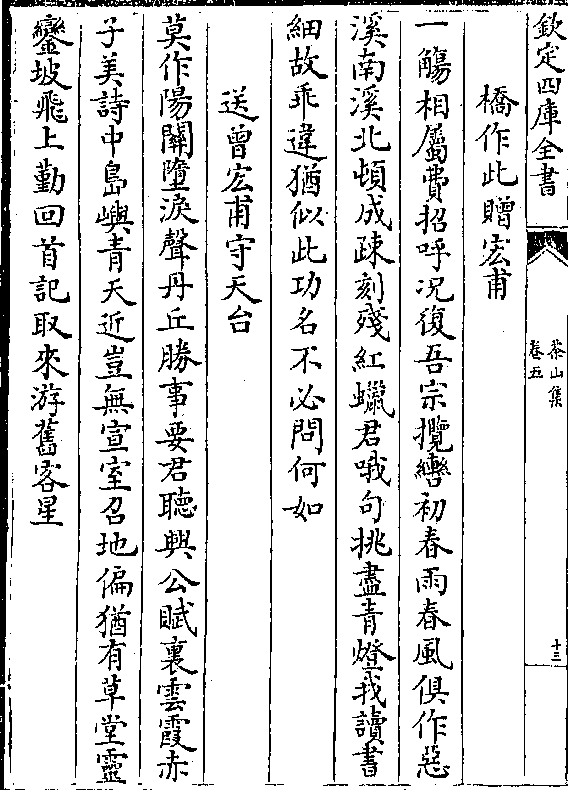 欽定四庫全書
茶山集
卷五
十三
橋作此贈宏甫
一觴相屬費招呼况復吾宗攬轡初春雨春風俱作惡
溪南溪北頓成疎刻殘紅蠟君哦句挑盡青燈我讀書
細故乖違猶似此功名不必問何如
送曾宏甫守天台
莫作陽關墮淚聲丹丘勝事要君聽興公賦裏雲霞赤
子美詩中島嶼青天近豈無宣室召地偏猶有草堂靈
鑾坡飛上勤回首記取來游舊客星